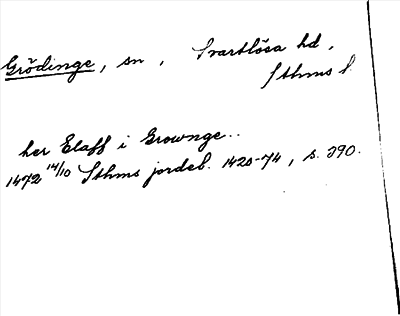 Grödinge, sn, Svartlösa hd,
Sthms l.
her Elaff i Grownge..
1472 14/10 Sthms jordeb. 1420-74, s. 290.